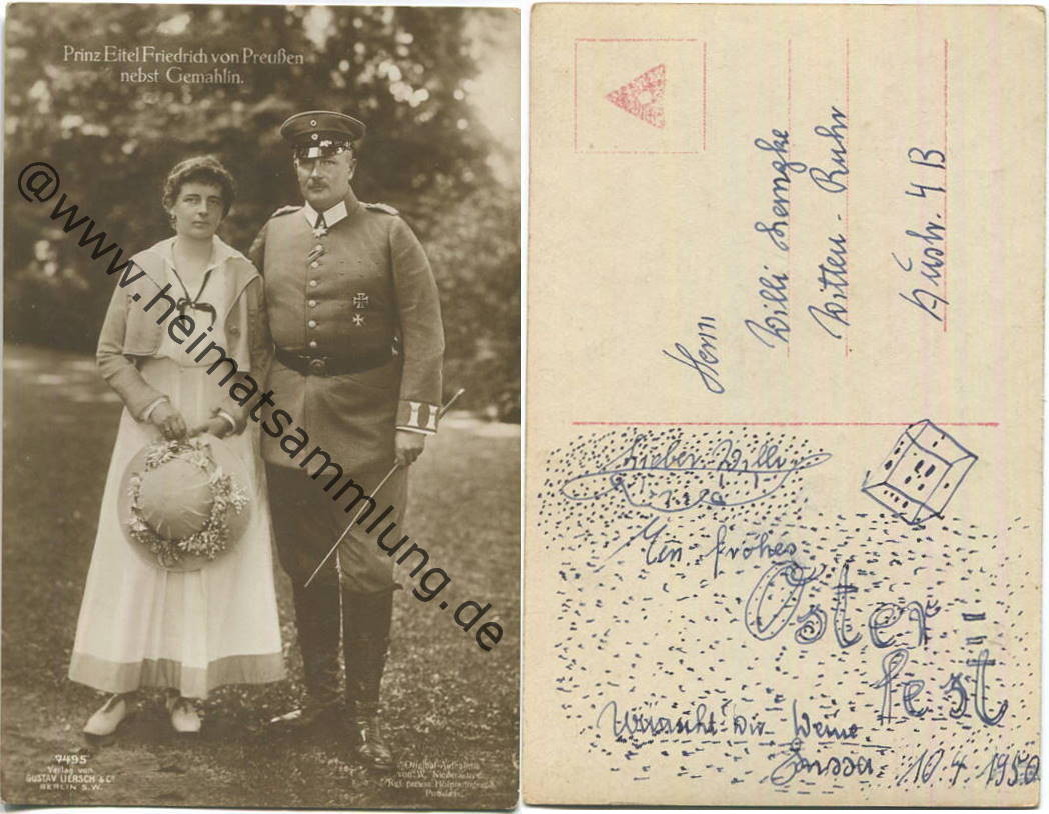 Prinz Eitel Friedrich von Preußen
nebst Gemahlin.
@www.heimatsammlung.de
7495
Verlag von
GUSTAV LIERSCH & Co
BERLIN S.W.
Original-Aufnahme
von W. Niederastroth
Potsdam
Herrn
Willi
Witten-Ruhr
4 B
Lieber Willi
Ein frohes
Oster
fest
Wünscht dir Deine
10.4.1950